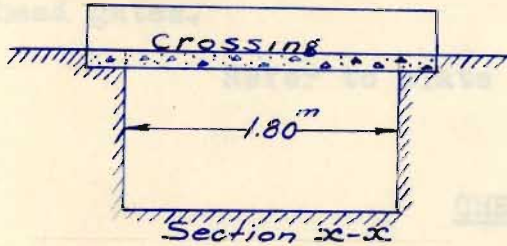 Crossing
1.80 m
Section x-x